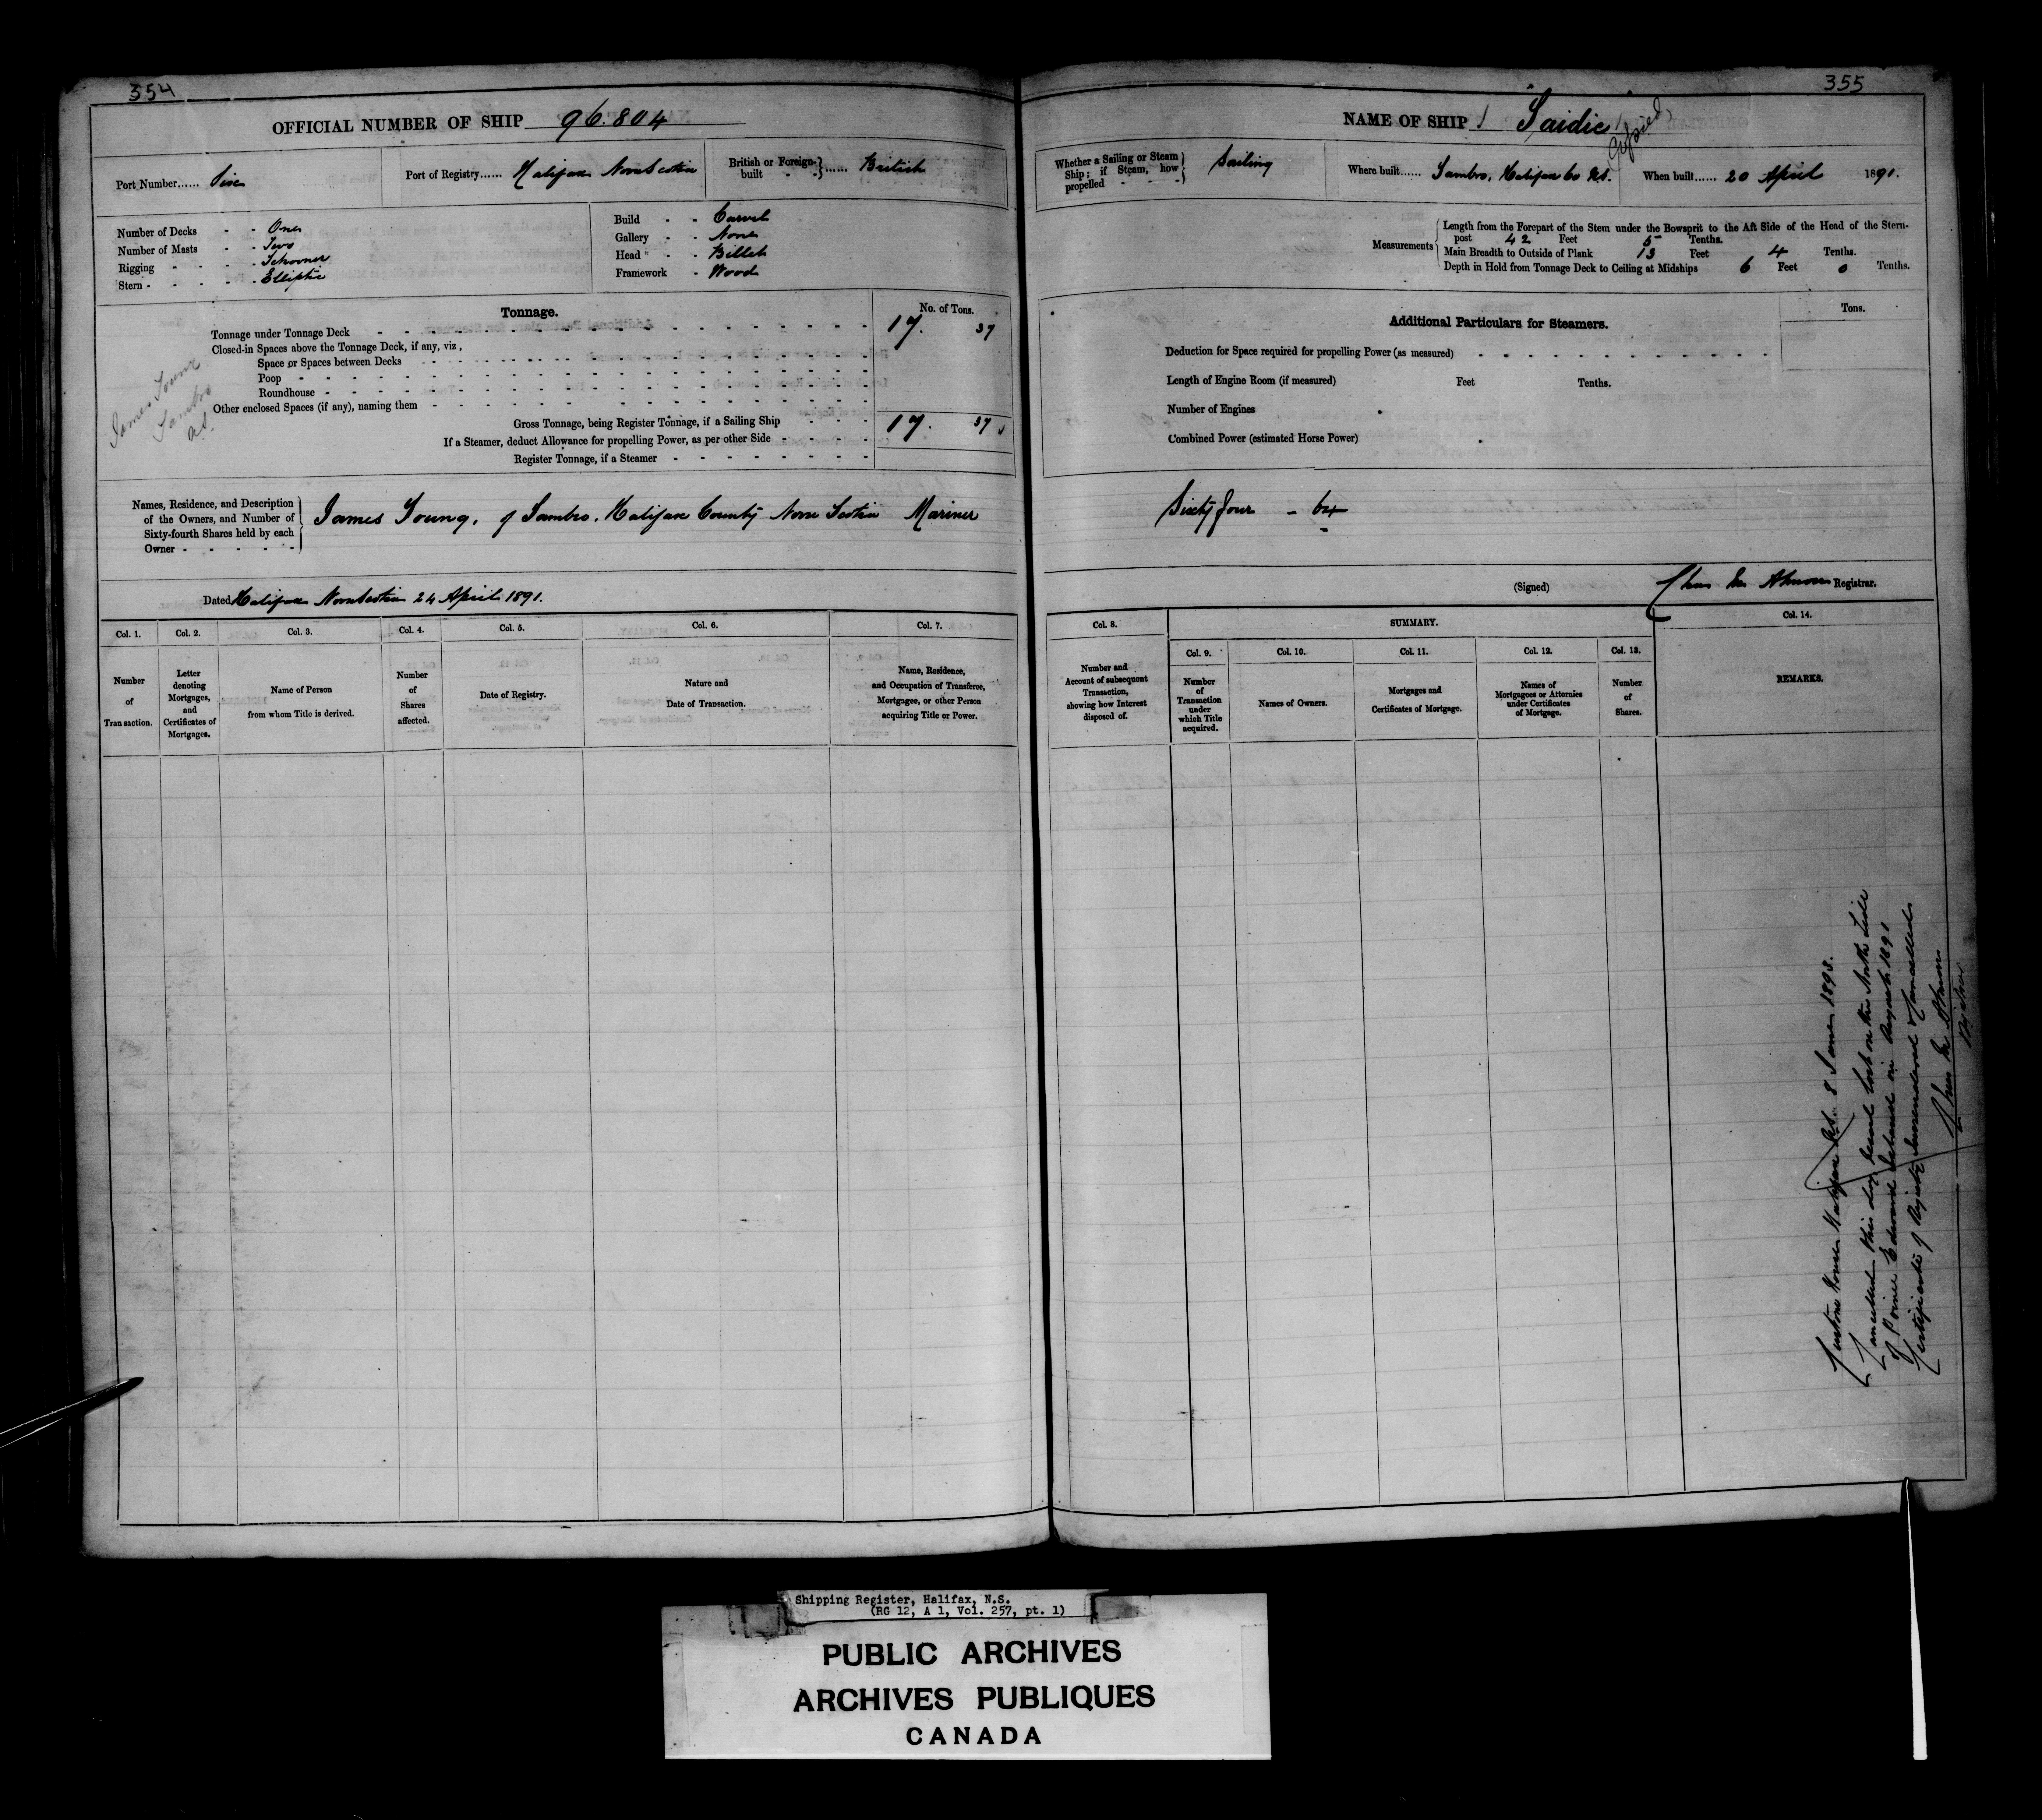 354
OFFICIAL NUMBER OF SHIP 96.804
Port Number...... Port of Registry...... Halifax Nova Scotia British or Foreign-built - - } ...... British
Number of Decks - - One
Number of Masts - - Two
Rigging - - - - Schooner
Stern - - - - - Elliptic
Build - - Carvel
Gallery - - None
Head - - Billet
Framework - Wood
Tonnage. No. of Tons.
Tonnage under Tonnage Deck 17. 37
Closed-in Spaces above the Tonnage Deck, if any, viz,
Space or Spaces between Decks
Poop
Roundhouse
Other enclosed Spaces (if any), naming them
Gross Tonnage, being Register Tonnage, if a Sailing Ship 17. 37
If a Steamer, deduct Allowance for propelling Power, as per other Side
Register Tonnage, if a Steamer
James Young
Sambro
N.S.
Names, Residence, and Description
of the Owners, and Number of
Sixty-fourth Shares held by each
Owner - - - - -
James Young, of Sambro, Halifax County Nova Scotia Mariner
Dated Halifax Nova Scotia 24 April 1891.
Col. 1. Col. 2. Col. 3. Col. 4. Col. 5. Col. 6. Col. 7.
Number of Transaction.
Letter denoting Mortgages, and Certificates of Mortgages.
Name of Person from whom Title is derived.
Number of Shares affected.
Date of Registry.
Nature and Date of Transaction.
Name, Residence, and Occupation of Transferee, Mortgagee, or other Person acquiring Title or Power.
355
NAME OF SHIP "Saidie"
Copied
Whether a Sailing or Steam Ship; if Steam, how propelled - - - } Sailing
Where built...... Sambro, Halifax Co N.S. When built...... 20 April 1891.
Measurements
Length from the Forepart of the Stem under the Bowsprit to the Aft Side of the Head of the Stern-
post 42 Feet 5 Tenths.
Main Breadth to Outside of Plank 13 Feet 4 Tenths.
Depth in Hold from Tonnage Deck to Ceiling at Midships 6 Feet 0 Tenths.
Additional Particulars for Steamers. Tons.
Deduction for Space required for propelling Power (as measured)
Length of Engine Room (if measured) Feet Tenths.
Number of Engines
Combined Power (estimated Horse Power)
Sixty four - 64
(Signed) Registrar.
Col. 8. SUMMARY. Col. 14.
Col. 9. Col. 10. Col. 11. Col. 12. Col. 13.
Number and Account of subsequent Transaction, showing how Interest disposed of.
Number of Transaction under which Title acquired.
Names of Owners.
Mortgages and Certificates of Mortgage.
Names of Mortgagees or Attornies under Certificates of Mortgage.
Number of Shares.
REMARKS.
Custom House Halifax N.S. 8 June 1893.
Cancelled this day vessel lost on the North Side
of Prince Edward Island in August 1891
Certificate of Registry surrendered & Cancelled
Registrar
Shipping Register, Halifax, N.S.
(RG 12, A 1, Vol. 257, pt. 1)
PUBLIC ARCHIVES
ARCHIVES PUBLIQUES
CANADA